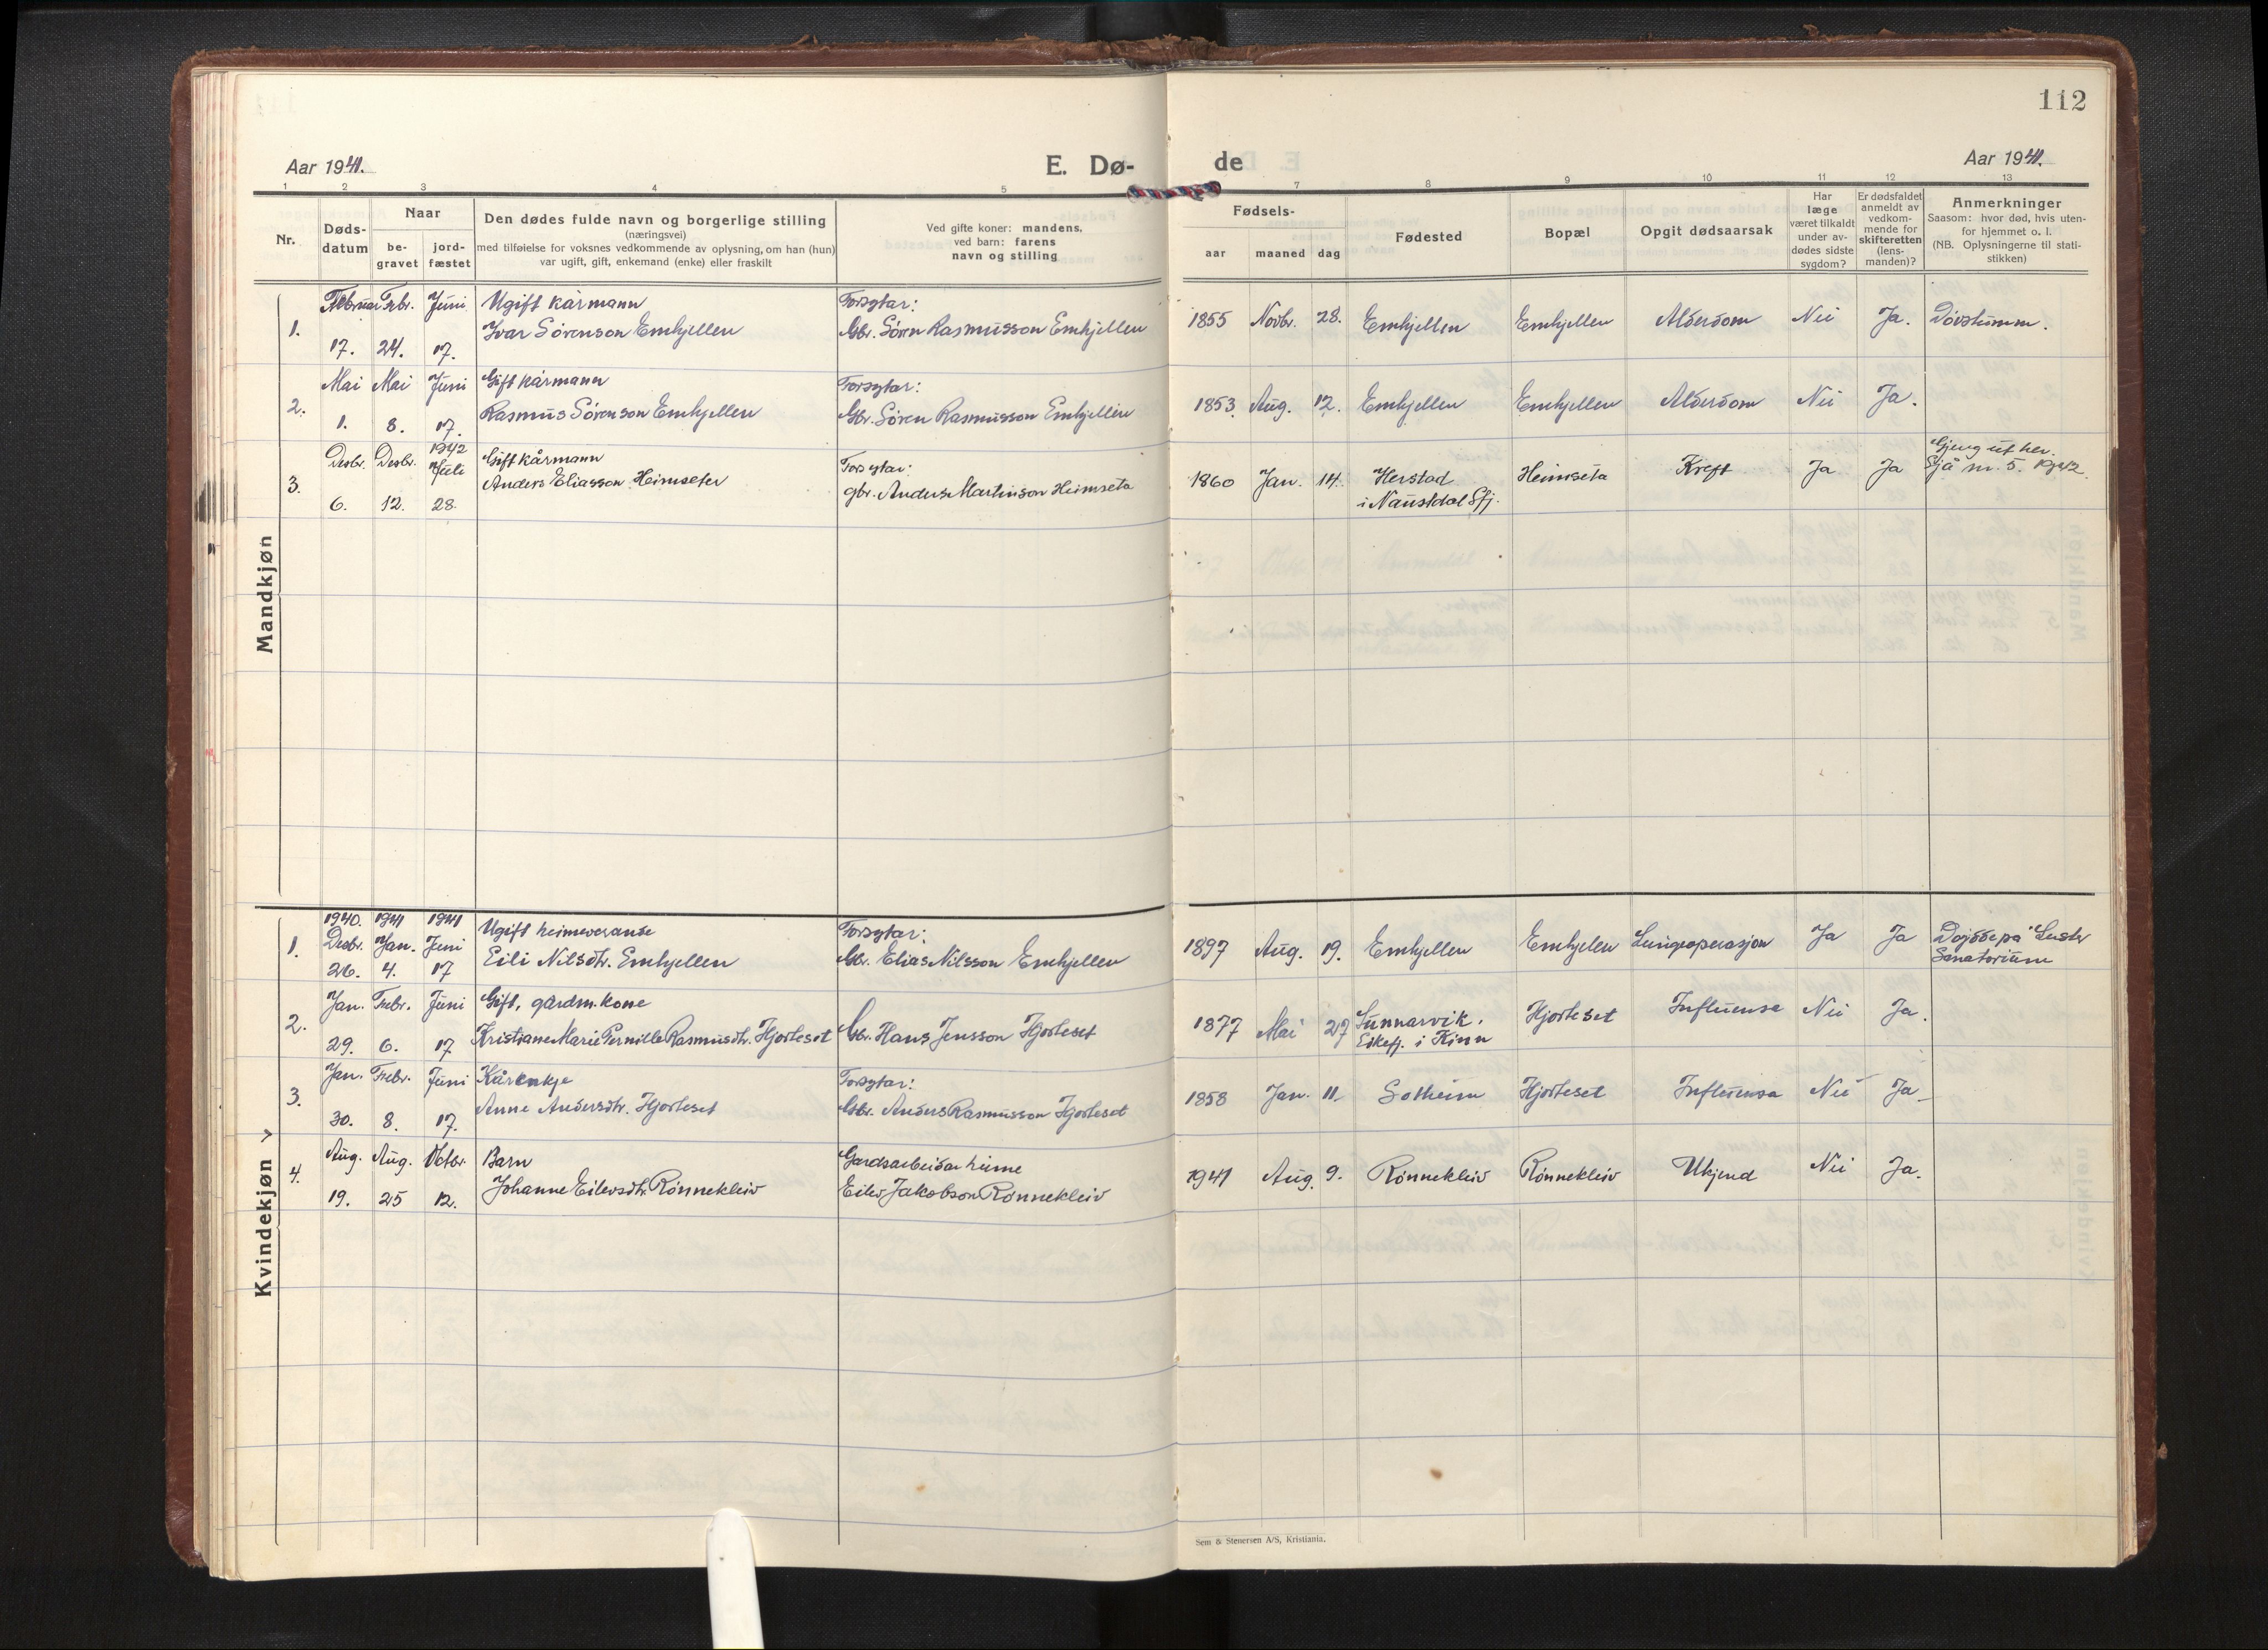 112
Aar 1941.
E. Dø-
de
Aar 1941.
1 2 3 4 5 7 8 9 10 11 12 13
Nr.
Døds-
datum
Naar
be-
gravet
jord-
fæstet
Den dødes fulde navn og borgerlige stilling
(næringsvei)
med tilføielse for voksnes vedkommende av oplysning, om han (hun)
var ugift, gift, enkemand (enke) eller fraskilt
Ved gifte koner: mandens,
ved barn: farens
navn og stilling
Fødsels-
aar maaned dag
Fødested
Bopæl
Opgit dødsaarsak
Har
læge
været tilkaldt
under av-
dødes sidste
sygdom?
Er dødsfaldet
anmeldt av
vedkom-
mende for
skifteretten
(lens-
manden)?
Anmerkninger
Saasom: hvor død, hvis uten-
for hjemmet o. l.
(NB. Oplysningerne til stati-
stikken)
Mandkjøn
1. Februar 17. Febr. 24. Juni 17.
Ugift kårmann
Ivar Sørenson Emhjellen
Forsytar:
Gbr. Søren Rasmusson Emhjellen
1855 Novbr. 28. Emhjellen Emhjellen Alderdom Nei Ja. Døvstumm.
2. Mai 1. Mai 8. Juni 17.
Gift kårmann
Rasmus Sørenson Emhjellen
Forsytar:
Gbr. Søren Rasmusson Emhjellen
1853 Aug. 12. Emhjellen Emhjellen Alderdom Nei Ja.
3. Desbr. 6. Desbr. 12. 1942 Juli 28.
Gift kårmann
Anders Eliasson Heimseter
Forsytar:
gbr. Anders Martinson Heimseta
1860 Jan. 14. Herstad
i Naustdal Sfj.
Heimseta Kreft Ja Ja
Gjeng ut her.
Sjå nr. 5. 1942.
Kvindekjøn
1. 1940. Desbr. 26. 1941 Jan. 4. 1941 Juni 17
Ugift heimeverande
Eili Nilsdtr. Emhjellen
Forsytar:
Gbr. Elias Nilsson Emhjellen
1897 Aug. 19. Emhjellen Emhjelen Lungeoperasjon Ja Ja
Døydde på Luster
Sanatorium
2. Jan. 29. Febr. 6. Juni 17
Gift, gårdm. kone
Kristiane Marie Pernille Rasmusdtr. Hjorteset
Gbr. Hans Jensson Hjorteset
1877 Mai 27 Sunnarvik.
Eikefj. i Kinn
Hjorteset Influensa Nei Ja.
3. Jan. 30. Febr. 8. Juni 17.
Kårenkje
Anne Andersdtr. Hjorteset
Forsytar:
Gbr. Anders Rasmusson Hjorteset
1858 Jan. 11. Solheim Hjorteset Influensa Nei Ja
4. Aug. 19. Aug. 25 Oktbr. 12.
Barn
Johanne Eilevsdtr. Rønnekleiv
Gardsarbeidar heime
Eilev Jakobson Rønnekleiv
1941 Aug. 9. Rønnekleiv Rønnekleiv Ukjend Nei Ja.
Sem & Stenersen A/S, Kristiania.